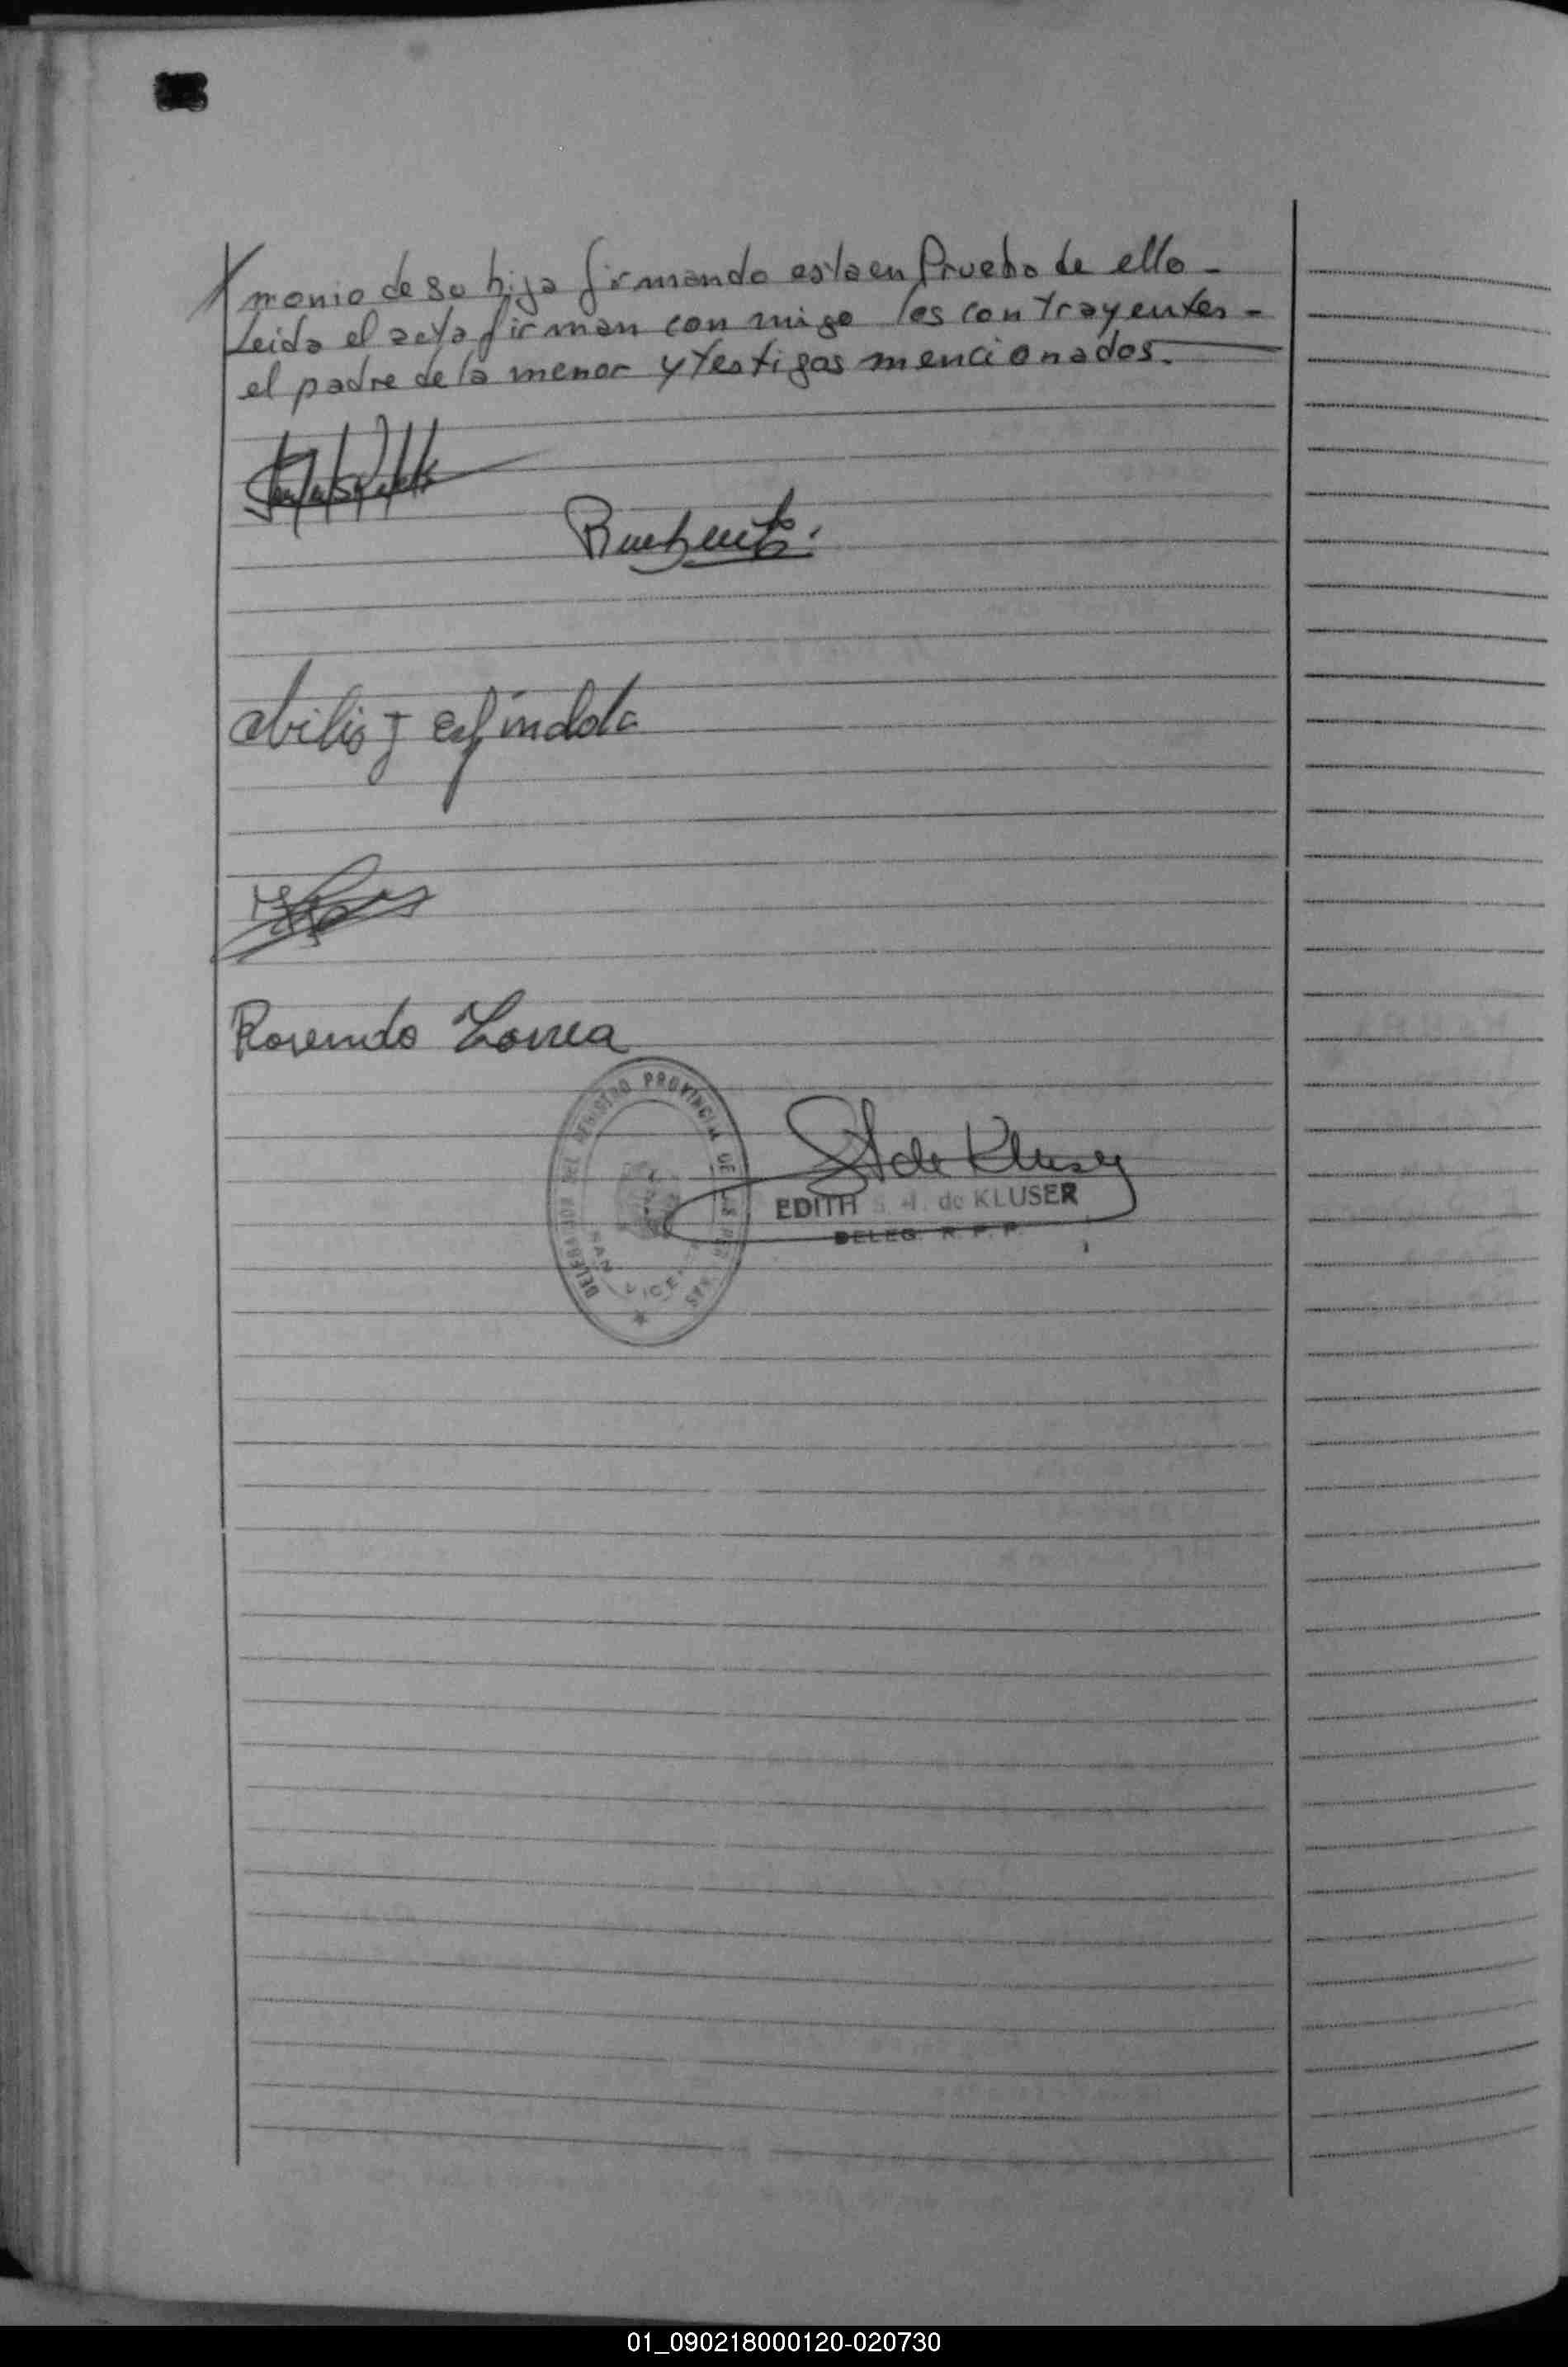 monio de su hija firmando esta en Prueba de ello -
Leida el acta firman con migo los contrayentes -
el padre de la menor y testigos mencionados.
abilio J espindola
Rosendo
DELEGADA DEL REGISTRO PROVINCIAL DE LAS PERSONAS
SAN VICENTE
de Kluser
EDITH S. H. de KLUSER
DELEG. R. P. P.
01_090218000120-020730